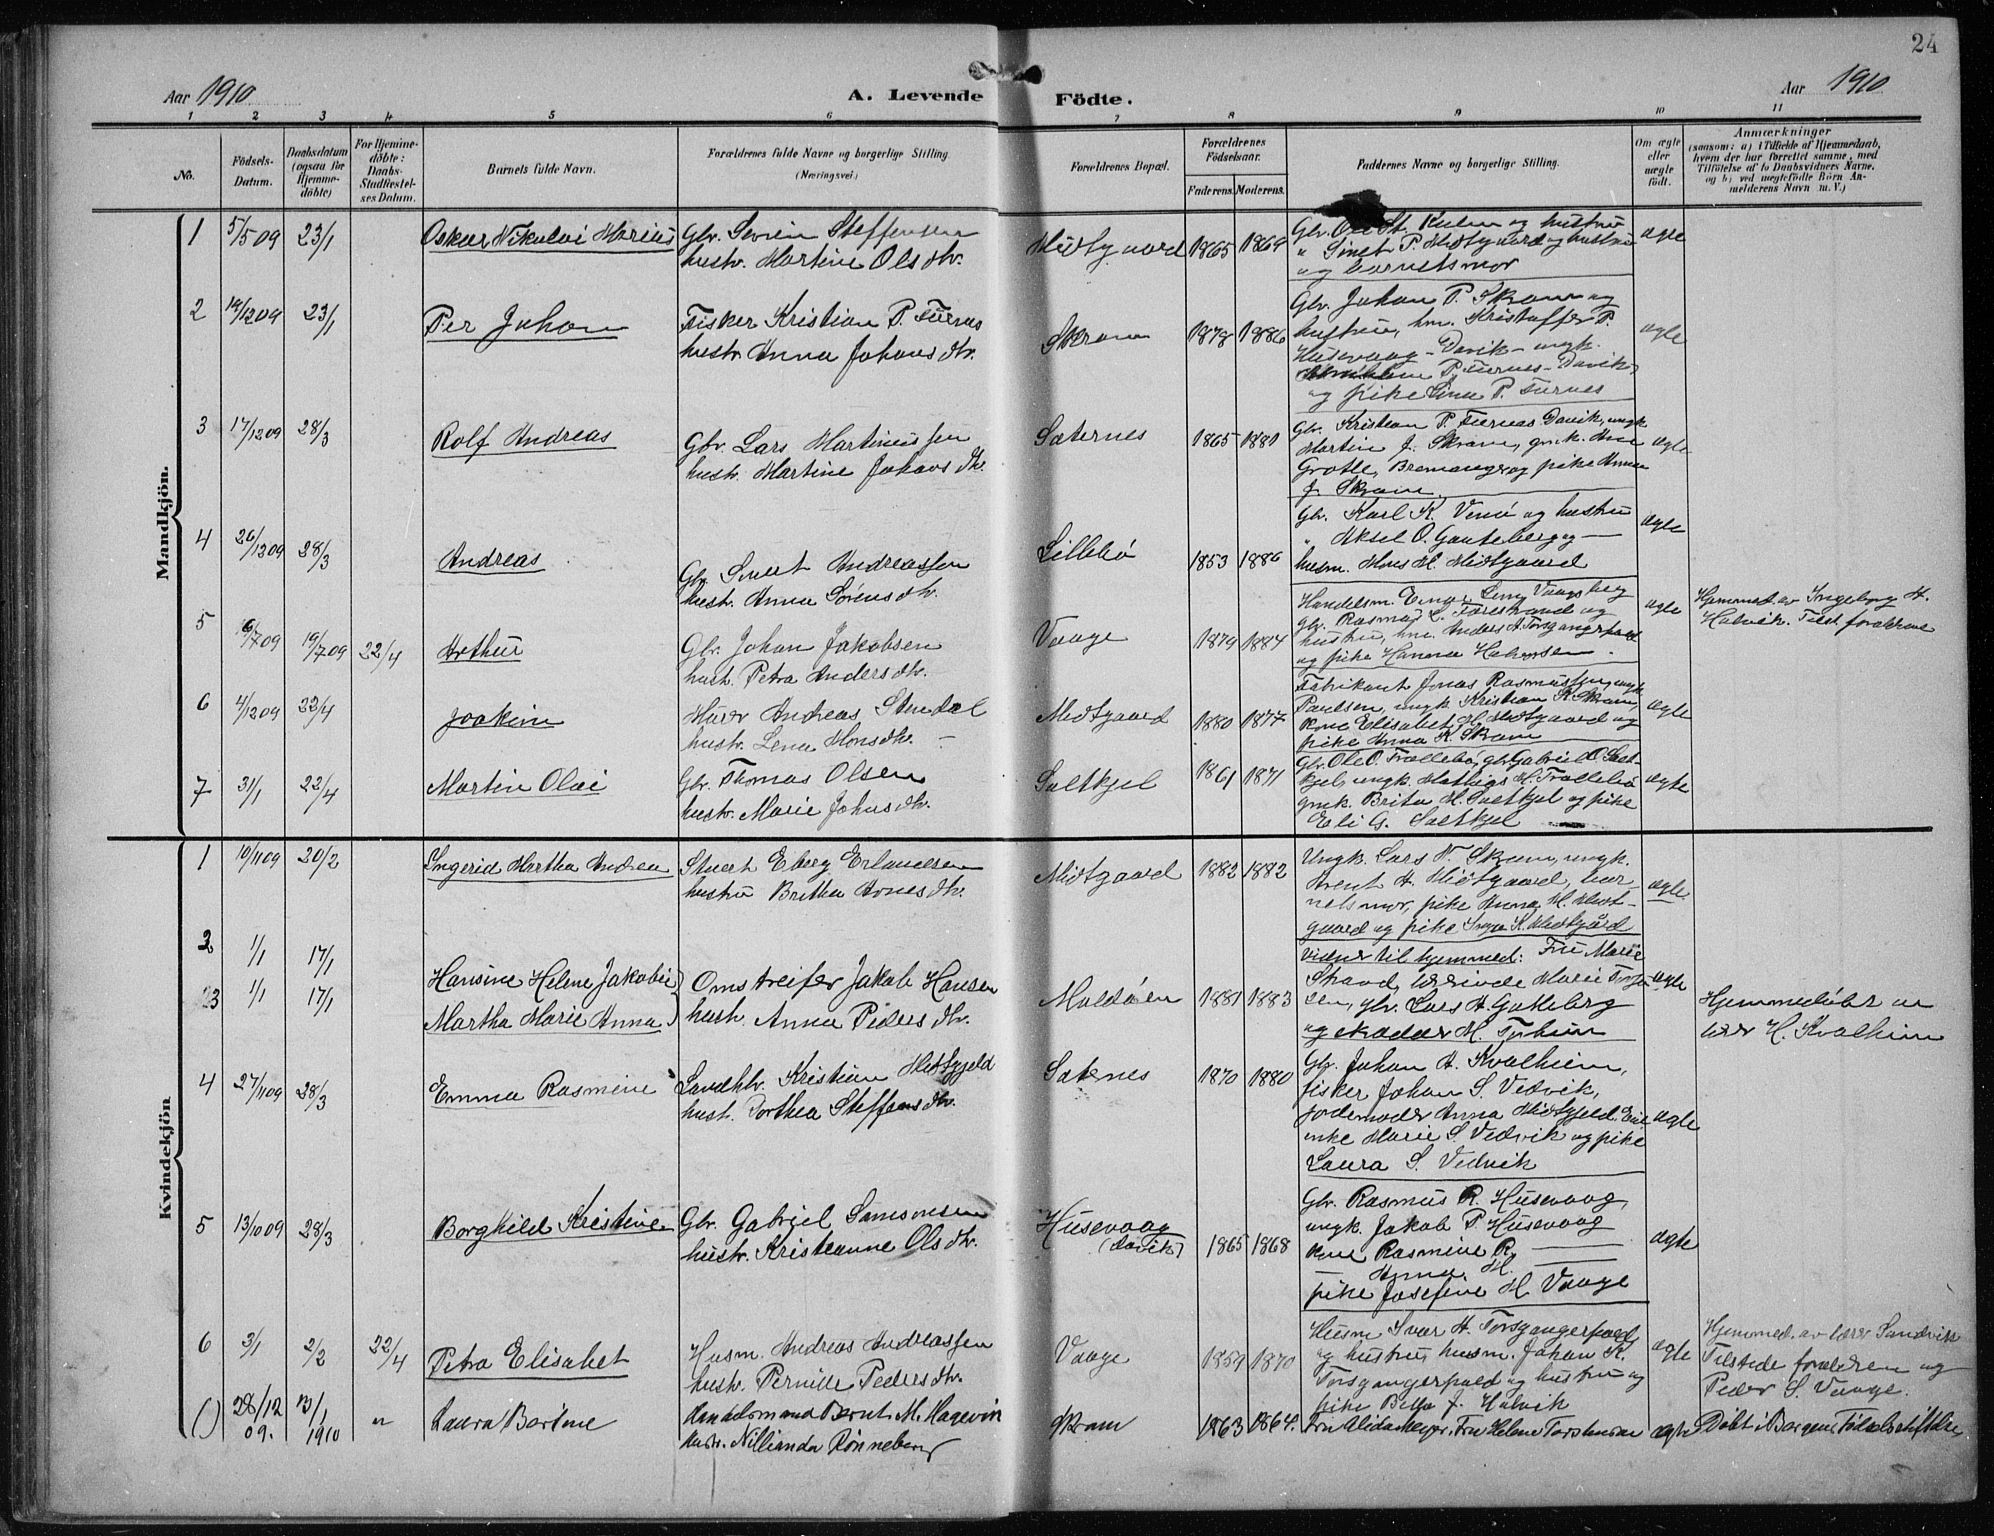 24
Aar 1910
A. Levende Födte.
Aar 1910
1 2 3 4 5 6 7 8 9 10 11
No.
Födsels-Datum.
Daabsdatum (ogsaa for Hjemme-döbte)
For Hjemme-döbte: Daabs-Stadfæstel-ses Datum.
Barnets fulde Navn.
Forældrenes fulde Navne og borgerlige Stilling (Næringsvei.)
Forældrenes Bopæl.
Forældrenes Födselsaar.
Faderens. Moderens.
Faddernes Navne og borgerlige Stilling.
Om ægte eller uægte födt.
Anmærkninger
(saasom: a) i Tilfælde af Hjemmedaab,
hvem der har forrettet samme, med
Tilföielse af to Daabsvidners Navne,
og b) ved uægtefödte Börn An-
melderens Navn m. V.)
Mandkjön.
1 5/5 09 23/1 Oskar Nikolai Marius Gbr. Steffensen
hustr. Martine Olsdtr.
Midtgaard 1865 1869
Gbr. St. Kulen og hustru
" P. Midtgaard og hustru
og barnets mor
ægte
2 19/12 09 23/1 Per Johan Fisker Kristian P. Furnes
hustr. Anna Johansdtr.
Skram 1878 1886
Gbr. Johan P. Skram og
hustru, hm. Kristoffer P.
Husevaag - Davik - ungk.
P. Furnes - Davik
og pike Lina P. Furnes
ægte
3 17/12 09 28/3 Rolf Andreas Gbr. Lars Martinussen
hustr. Martine Johansdtr.
Sæternes 1865 1881
Gbr. Kristian P. Furnes Davik, ungk
Martin J. Skram, gmk.
Grotle, Bremanger og pike Anna
J. Skram
ægte
4 26/12 09 28/3 Andreas Gbr. Sivert Andreassen
hustr. Anna Sörensdtr.
Lillebö 1853 1886
Gbr. Karl K. og hustru
" Aksel O. Gaateberg og —
husm. Mons M. Midtgaard
ægte
5 /7 09 19/7 09 22/4 Arthur Gbr. Johan Jakobsen
hust. Petra Andersdtr.
Vaage 1879 1884
Handelsm. Vaagsberg
gbr. Rasmus L. og
hustru, hm. Anders A. Torsgangerpold
og pike Hanna
ægte
Hjemmed. av Ingeborg A.
Halvik. Tilst. forældrene
6 4/12 09 22/4 Joakim Murer Andreas Stendal
hustr. Lena Monsdtr. —
Midtgaard 1880 1877
Fabrikant Jonas Rasmussen, ungk
Paulsen, ungk. Kristian K. Skram,
kone Elisabet M. Midtgaard og
pike Anna K. Skram
ægte
7 31/1 22/4 Martin Olai Gbr. Thomas Olsen
hustr. Marie Johnsdtr.
Saltkjel 1861 1871
Gbr. Ole O. Trællebö, gbr. Gabriel O. Salt-
kjel, ungk. Mathias M. Trællebö
gmk. Brita M. Saltkjel og pike
Eli G. Saltkjel
ægte
Kvindekjön
1 19/11 09 20/2 Ingerid Martha Andrea Stuert Eberg Erlandsen
hustru Britha Arnesdtr.
Midtgaard 1882 1882
Ungk. Lars N. Skram, ungk.
Arent A. Midtgaard, bar-
nets mor, pike Anna M. Midt-
gaard og pike Inga K. Midtgård
ægte
2 1/1 17/1 Hansine Helene Jakobie
3 1/1 17/1 Martha Marie Anna
Omstreifer Jakob Hansen
hustr. Anna Pedersdtr.
Maldöen 1881 1883
Vidner til hjemmed: Fru Marie
Strand, lærerinde Marie
sen, gbr. Lars A. Gotteberg
og skredder M. Tyhun
ægte
Hjemmedöbt av
lærer H. Kvalheim
4 27/11 09 28/3 Emma Rasmine Landhlr. Kristian Midtgjeld
hust. Dorthea Steffensdtr.
Sæternes 1870 1880
Gbr. Johan A. Kvalheim,
fisker Johan S. Vedvik,
jordemoder Anna Midtgjeld
enke Marie S. Vedvik og pike
Laura S. Vedvik
ægte
5 13/10 09 28/3 Borghild Kristine Gbr. Gabriel Samsonsen
hustr. Kristianne Olsdtr.
Husevaag
(Davik)
1865 1868
Gbr. Rasmus R. Husevaag
ungk. Jakob P. Husevaag
kone Rasmine R. —
Anna M. —
pike Josefine M. Vaage
ægte
6 3/1 2/2 22/4 Petra Elisabet Husm. Andreas Andreassen
hustr. Pernille Pedersdtr.
Vaage 1859 1870
Husm Ivar A. Torsgangerpold
og hustru, husm. Johan K.
Torsgangerpold og hustru og
pike J. Halvik
ægte
Hjemmed. av lærer Sandvik
Tilstede forældren og
Peder S. Vaage.
() 28/12 09. 13/1 1910 " Laura Bertine Handelsmand Bernt M. Hagevik
hustr. Nillianda Rönneberg
Skram 1863 1864.
Fru Alida Meyer, Fru Helene Torstensen
ægte
Döbt i Bergens Födselsstiftelse